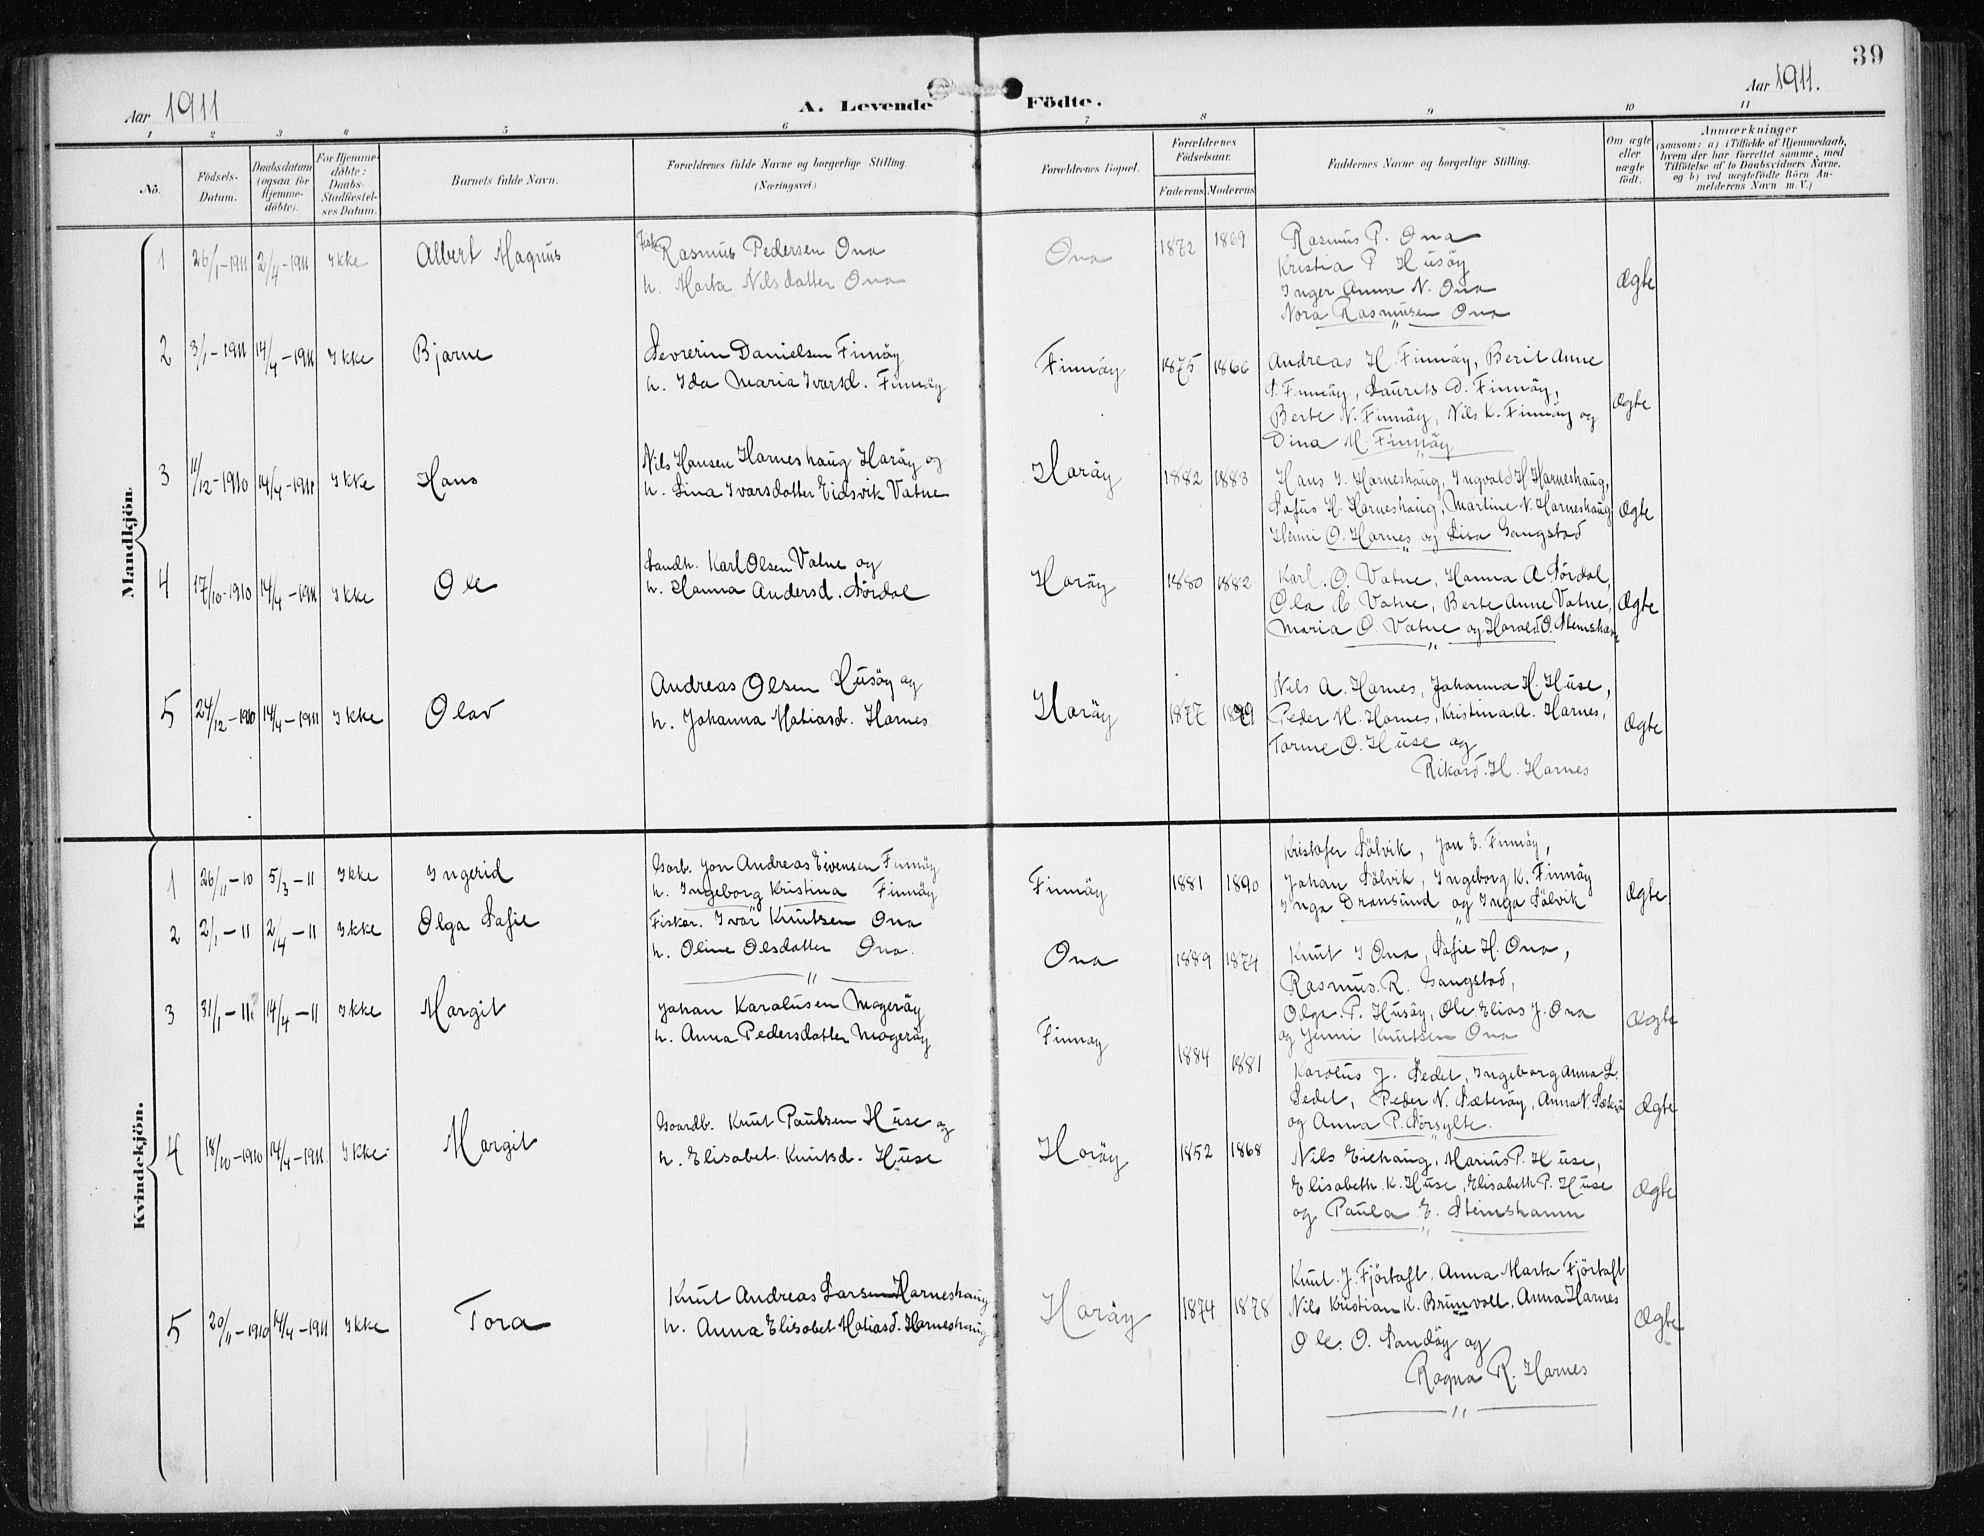 39
Aar 1911
A. Levende Födte.
Aar 1911.
1 2 3 4 5 6 7 8 9 10 11
No.
Födsels-Datum.
Daabsdatum (ogsaa for Hjemme-döbte).
For Hjemme-döbte: Daabs-Stadfæstel-ses Datum.
Barnets fulde Navn.
Forældrenes fulde Navne og borgerlige Stilling.
(Næringsvei.)
Forældrenes Bopæl.
Forældrenes Födselsaar.
Faderens Moderens
Faddernes Navne og borgerlige Stilling.
Om ægte eller uægte födt.
Anmærkninger
(saasom: a) i Tilfælde af Hjemmedaab,
hvem der har forrettet samme, med
Tilföielse af to Daabsvidners Navne.
og b) ved uægtefödte Börn An-
melderens Navn m. V.)
Mandkjön.
1 26/1-1911 2/4-1911 Ikke Albert Magnus
Fisk. Rasmus Pedersen Ona
h. Marta Nilsdatter Ona
Ona 1872 1869
Rasmus P. Ona
Kristia P Husöy
Inger Anna N. Ona
Nora Rasmusen Ona
Ægte
2 3/1-1911 14/4-1911 Ikke Bjarne
Sevrerin Danielsen Finnöy
h. Ida Maria Ivarsd. Finnöy
Finnöy 1875 1866
Andreas H. Finnöy, Berit Anne
S. Finnöy, Laurits D. Finnöy,
Berte N. Finnöy, Nils K. Finnöy og
Dina M. Finnöy
Ægte
3 11/12-1910 14/4-1911 Ikke Hans
Nils Hansen Harneshaug Haröy og
h. Lina Ivarsdatter Eidsvik Vatne
Haröy 1882 1883
Hans I. Harneshaug, Ingvald H. Harneshaug,
Sofus H. Harneshaug, Martine N. Harneshaug
Henni O. Harnes og Lisa Gangstad
Ægte
4 17/10-1910 14/4-1911 Ikke Ole
Landh. Karl Olsen Vatne og
h. Hanna Andersd. Sördal
Haröy 1880 1882
Karl. O. Vatne, Hanna A Sördal,
Ola C. Vatne, Berte Anne Vatne,
Maria O. Vatne og Harald O. Steinshavn
Ægte
5 24/12-1910 14/4-1911 Ikke Olav
Andreas Olsen Husöy og
h. Johanna Matiasd. Harnes
Haröy 1877 1879
Nils A. Harnes, Johanna H. Huse,
Peder M. Harnes, Kristina A. Harnes,
Torine O. Huse og
Rikard. H. Harnes
Ægte
Kvindekjön.
1 26/11-10 5/3-11 Ikke Ingerid
Gaarb. Jon Andreas Eivensen Finnöy
h. Ingeborg Kristina Finnöy
Finnöy 1881 1890
Kristofer Sölvik, Jon E. Finnöy,
Johan Sölvik, Ingeborg K. Finnöy
Inga Dransund og Inga Sölvik
Ægte
2 2/1-11 2/4-11 Ikke Olga Sofie
Fisker. Ivar Knutsen Ona
h. Oline Olsdatter Ona.
Ona 1889 1874
Knut I Ona, Sofie H. Ona,
Rasmus. R. Gangstad,
Olga. P. Husöy, Ole Elias J. Ona
og Jenni Knutsen Ona
Ægte
3 31/1-11 14/4-11 Ikke Margit
Johan Karolusen Mageröy
h. Anna Pedersdatter Mageröy
Finnoy 1884 1881
Karolus J. Sedet, Ingeborg Anna L.
Sedet, Peder N. Sæteröy, Anna N.
og Anna P. Sörsylte.
Ægte
4 18/10-1910 14/4-1911. Ikke Margit
Gaardb. Knut Paulsen Huse og
h. Elisabet. Knutsd. Huse
Haröy 1852 1868
Nils Eichaug, Marius P. Huse,
Elisabeth. K. Huse, Elisabeth P. Huse
og Paula E. Steinshamn
Ægte
5 20/11-1910 14/4-1911 Ikke Tora
Knut Andreas Larsen Harneshaug
h. Anna Elisabet Matiasd. Harneshaug
Haröy 1874 1878
Knut. J. Fjörtoft, Anna Marta Fjörtoft
Nils Kristian K. Brunvoll, Anna Harnes
Ole. O. Sandöy og
Ragna R. Harnes
Ægte